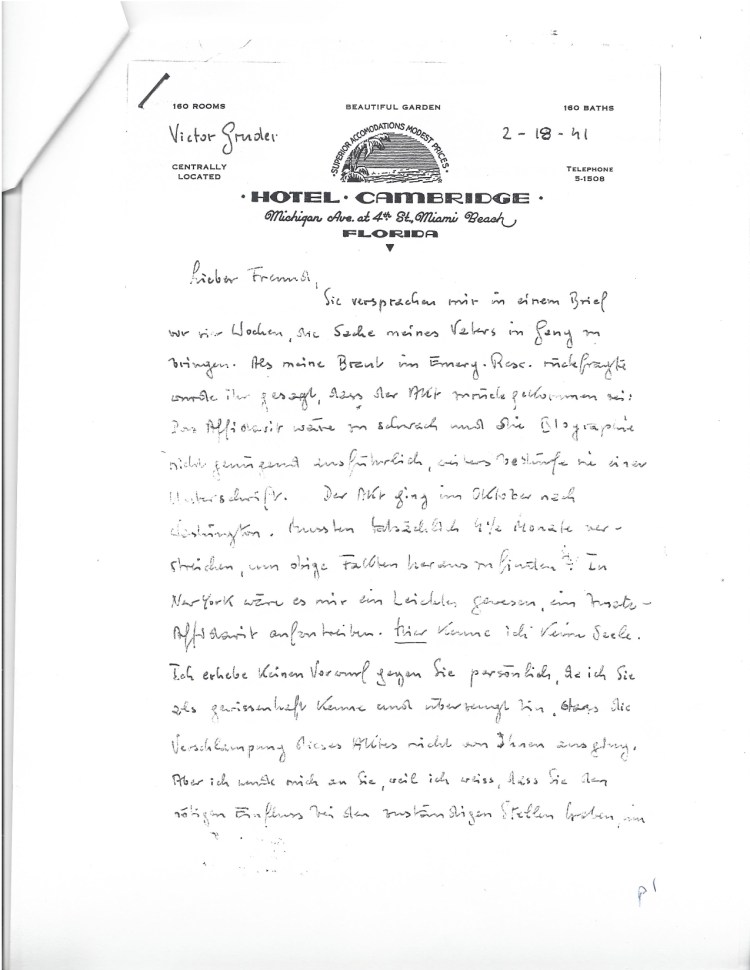 160 ROOMS BEAUTIFUL GARDEN 160 BATHS
Victor Gruder 2-18-41
SUPERIOR ACCOMODATIONS MODEST PRICES
CENTRALLY
LOCATED
TELEPHONE
5-1508
HOTEL · CAMBRIDGE
Michigan Ave. at 4th St, Miami Beach
FLORIDA
Lieber Freund,
Sie versprachen mir in einem Brief
vor vier Wochen, die Sache meines Vaters in Gang zu
bringen. Als meine Braut im Emerg. Resc. rückfragte
wurde ihr gesagt, dass der Akt zurückgekommen sei:
Das Affidavit wäre zu schwach und die Biographie
nicht genügend ausführlich, weiters bedürfe sie einer
Unterschrift. Der Akt ging im Oktober nach
Washington. Mussten tatsächlich 4½ Monate ver-
streichen, um obige Fakten herauszufinden?! In
New York wäre es mir ein Leichtes gewesen, ein Zusatz-
Affidavit aufzutreiben. Hier kenne ich keine Seele.
Ich erhebe keinen Vorwurf gegen Sie persönlich, da ich Sie
als gewissenhaft kenne und überzeugt bin, dass die
Verschlampung dieses Aktes nicht von Ihnen ausging.
Aber ich wende mich an Sie, weil ich weiss, dass Sie den
nötigen Einfluss bei den zuständigen Stellen haben, um
p 1